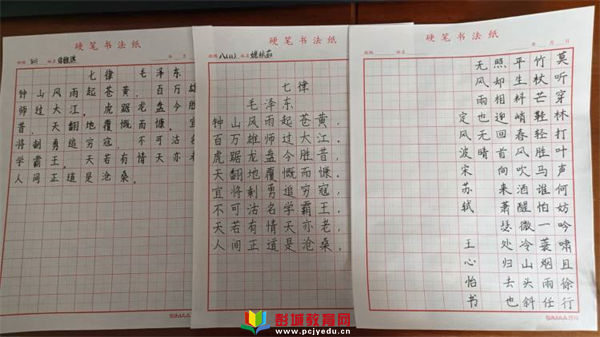 硬笔书法纸
班级
姓名
七律 毛泽东
钟山风雨起苍黄，百万
师过大江。虎踞龙盘今胜
昔，天翻地覆慨而慷。宜
将剩勇追穷寇，不可沽
学霸王。天若有情天亦
人间正道是沧桑。
硬笔书法纸
班级 八(11) 姓名
七律
毛泽东
钟山风雨起苍黄，
百万雄师过大江。
虎踞龙盘今胜昔，
天翻地覆慨而慷。
宜将剩勇追穷寇，
不可沽名学霸王。
天若有情天亦老，
人间正道是沧桑。
硬笔书法纸
班级 姓名 年 月 日
莫听穿林打叶声何妨吟啸且徐行
竹杖芒鞋轻胜马谁怕一蓑烟雨任
平生料峭春风吹酒醒微冷山头斜
照却相迎回首向来萧瑟处归去也
无风雨也无晴
定风波宋苏轼 王心怡书
彭城教育网
www.pcjyedu.cn